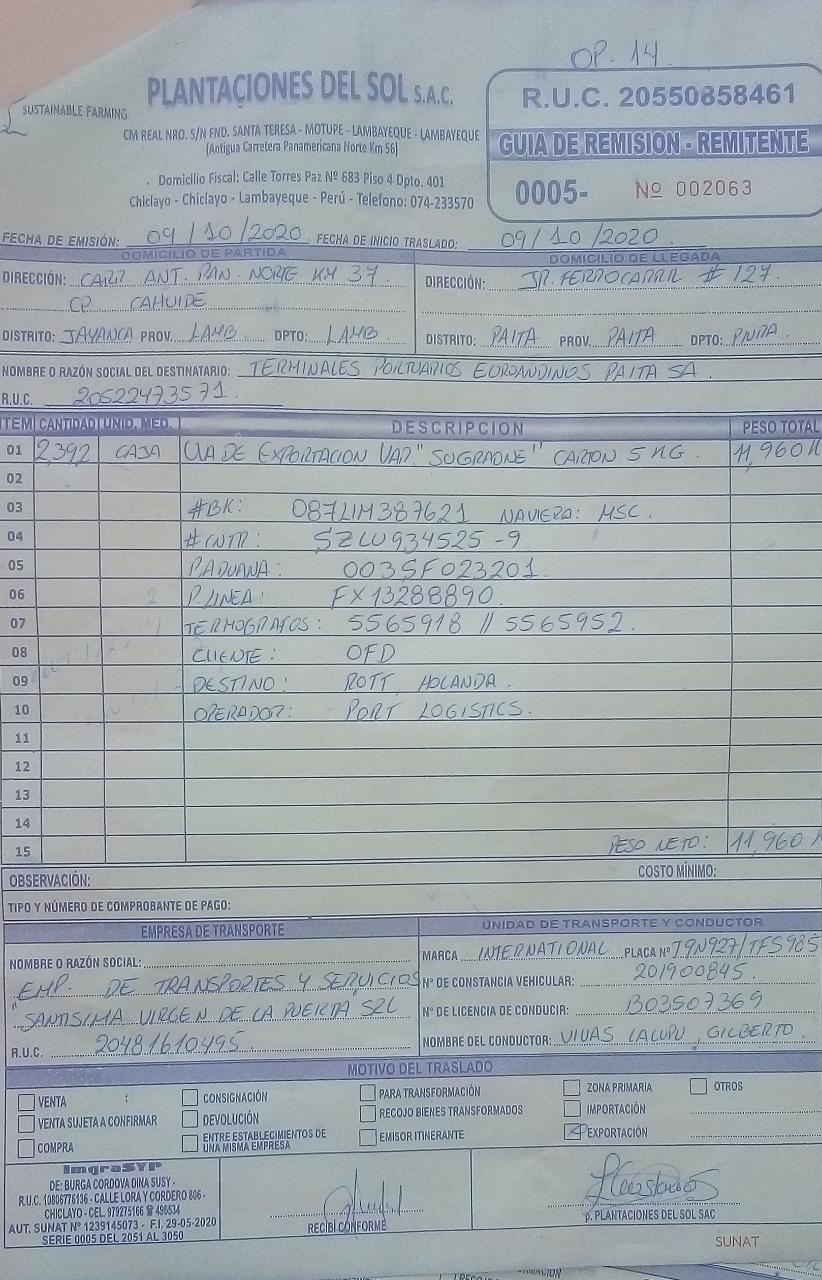 OP. 14
SUSTAINABLE FARMING
PLANTACIONES DEL SOL S.A.C.
CM REAL NRO. S/N FND. SANTA TERESA - MOTUPE - LAMBAYEQUE - LAMBAYEQUE
(Antigua Carretera Panamericana Norte Km 56)
Domicilio Fiscal: Calle Torres Paz Nº 683 Piso 4 Dpto. 401
Chiclayo - Chiclayo - Lambayeque - Perú - Telefono: 074-233570
R.U.C. 20550858461
GUIA DE REMISION - REMITENTE
0005- Nº 002063
FECHA DE EMISIÓN: 09/10/2020 FECHA DE INICIO TRASLADO: 09/10/2020
DOMICILIO DE PARTIDA DOMICILIO DE LLEGADA
DIRECCIÓN: CARR ANT. PAN. NORTE KM 37. DIRECCIÓN: JR. FERROCARRIL # 127.
CP CAHUIDE
DISTRITO: JAYANCA PROV. LAMB DPTO: LAMB. DISTRITO: PAITA PROV. PAITA DPTO: PIURA.
NOMBRE O RAZÓN SOCIAL DEL DESTINATARIO: TERMINALES PORTUARIOS EUROANDINOS PAITA SA.
R.U.C. 20522473571.
ITEM CANTIDAD UNID. MED. DESCRIPCION PESO TOTAL
01 2,392 CAJA UVA DE EXPORTACION VAR. "SUGRAONE" CARTON 5 KG. 11,960 K
02
03 #BK: 087LIM387621 NAVIERA: MSC.
04 #CNTR: SZLU934525-9
05 P.ADUANA: 003SF023201.
06 P.LINEA: FX13288890.
07 TERMOGRAFOS: 5565918 // 5565952.
08 CLIENTE: OFD
09 DESTINO: ROTT, HOLANDA.
10 OPERADOR: PORT LOGISTICS.
11
12
13
14
15 PESO NETO: 11,960 K
OBSERVACIÓN: COSTO MÍNIMO:
TIPO Y NÚMERO DE COMPROBANTE DE PAGO:
EMPRESA DE TRANSPORTE UNIDAD DE TRANSPORTE Y CONDUCTOR
NOMBRE O RAZÓN SOCIAL: MARCA INTERNATIONAL PLACA Nº T9N927/TFS985
EMP. DE TRANSPORTES Y SERVICIOS Nº DE CONSTANCIA VEHICULAR: 201900845.
"SANTISIMA VIRGEN DE LA PUERTA SRL Nº DE LICENCIA DE CONDUCIR: B03507369
R.U.C. 20481610495. NOMBRE DEL CONDUCTOR: VIVAS LALUPU, GILBERTO.
MOTIVO DEL TRASLADO
VENTA CONSIGNACIÓN PARA TRANSFORMACIÓN ZONA PRIMARIA OTROS
VENTA SUJETA A CONFIRMAR DEVOLUCIÓN RECOJO BIENES TRANSFORMADOS IMPORTACIÓN
COMPRA ENTRE ESTABLECIMIENTOS DE UNA MISMA EMPRESA EMISOR ITINERANTE EXPORTACIÓN
ImgraSYP
DE: BURGA CORDOVA DINA SUSY -
R.U.C. 10806776136 - CALLE LORA Y CORDERO 806 -
CHICLAYO - CEL. 979275166 ☎ 496534
AUT. SUNAT Nº 1239145073 - F.I. 29-05-2020
SERIE 0005 DEL 2051 AL 3050
RECIBÍ CONFORME
p. PLANTACIONES DEL SOL SAC
SUNAT